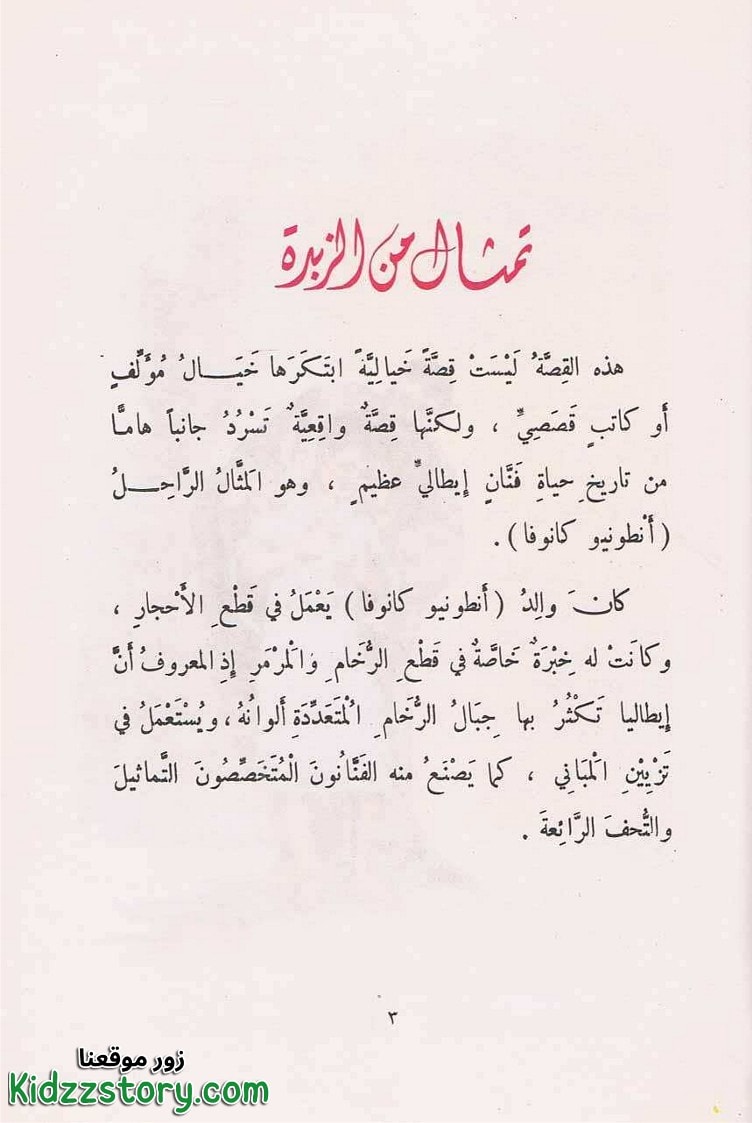 تمثال من الزبدة
هذه القِصَّةُ لَيْسَتْ قِصَّةً خَيالِيَّةً ابتَكَرَها خَيَالُ مُؤَلِّفٍ
أو كاتبٍ قَصَصِيٍّ ، ولكنَّها قِصَّةٌ واقِعِيَّةٌ تَسْرُدُ جانباً هامًّا
من تاريخِ حياةِ فَنَّانٍ إيطاليٍّ عظيمٍ ، وهو المَثَّالُ الرَّاحِلُ
(أنْطونيو كانوفا) .
كانَ والِدُ (أنطونيو كانوفا) يَعْمَلُ في قَطْعِ الأَحْجارِ ،
وكانَتْ له خِبْرَةٌ خَاصَّةٌ في قَطْعِ الرُّخَامِ والمَرْمَرِ إذِ المعروفُ أنَّ
إيطاليا تَكْثُرُ بها جِبَالُ الرُّخامِ المُتَعَدِّدَةِ ألوانُهُ ، ويُسْتَعْمَلُ في
تَزْيِيْنِ المَبَاني ، كما يَصْنَعُ منه الفَنَّانُونَ المُتَخَصِّصُونَ التَّماثيلَ
والتُّحفَ الرَّائِعةَ .
٣
زور موقعنا
Kidzzstory.com